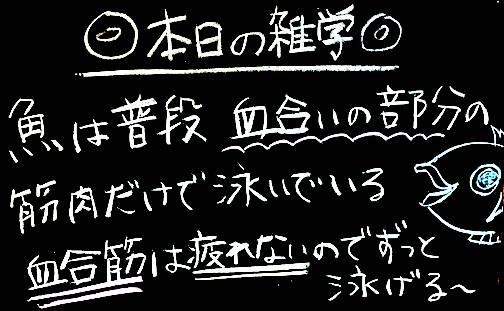 ◎本日の雑学◎
魚は普段 血合いの部分の
筋肉だけで泳いでいる
血合筋は疲れないのでずっと
泳げる〜